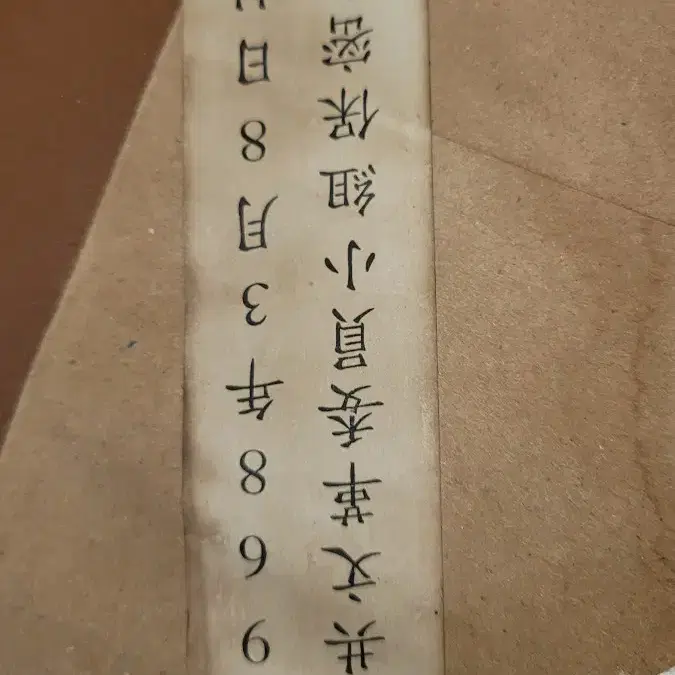 968年3月8日
共文革委員小組保密